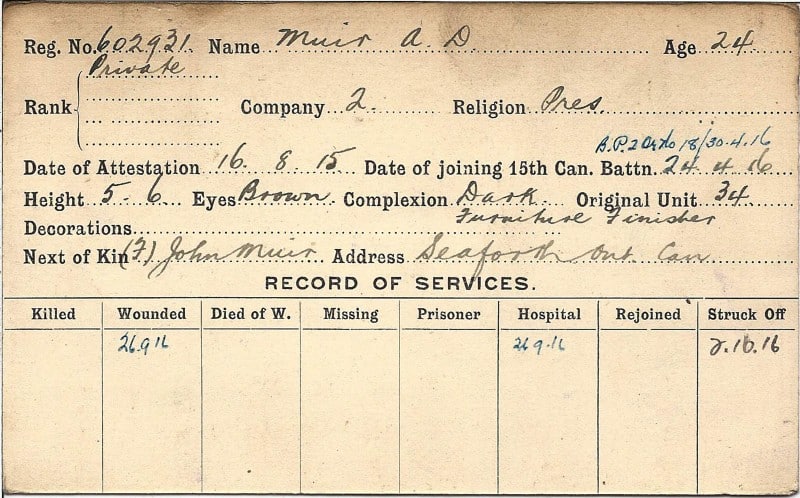 Reg. No. 602931. Name Muir A. D. Age 24
Private
Rank Company 2. Religion Pres.
B.P.2 Ordo 18/30.4.16
Date of Attestation 16 8 15 Date of joining 15th Can. Battn. 24 4 16
Height 5-6 Eyes Brown Complexion Dark Original Unit 34
Decorations Furniture Finisher
Next of Kin (F) John Muir Address Seaforth Ont. Can
RECORD OF SERVICES.
Killed Wounded Died of W. Missing Prisoner Hospital Rejoined Struck Off
26.9 16 26 9.16 2.10.16